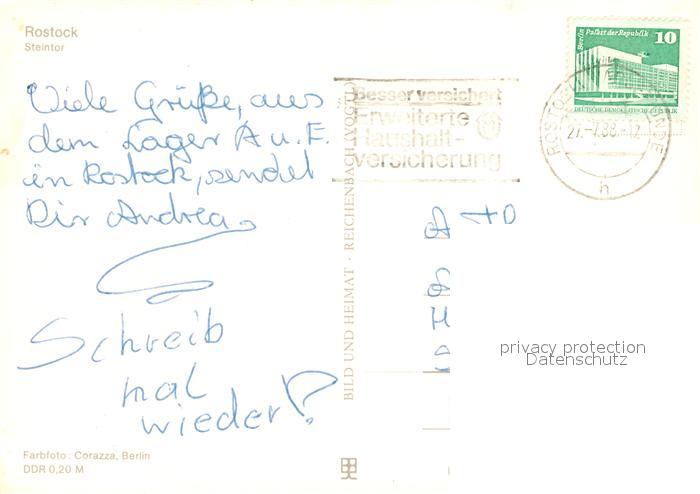 Rostock
Steintor
Viele Grüße, aus
dem Lager A u. E.
in Rostock, sendet
Dir Andrea.
Schreib
mal
wieder!
Farbfoto: Corazza, Berlin
DDR 0,20 M
BILD UND HEIMAT · REICHENBACH (VOGTL)
Besser versichert
Erweiterte
Haushalt-
versicherung
Berlin Palast der Republik 10
DEUTSCHE DEMOKRATISCHE REPUBLIK
ROSTOCK
h
privacy protection
Datenschutz